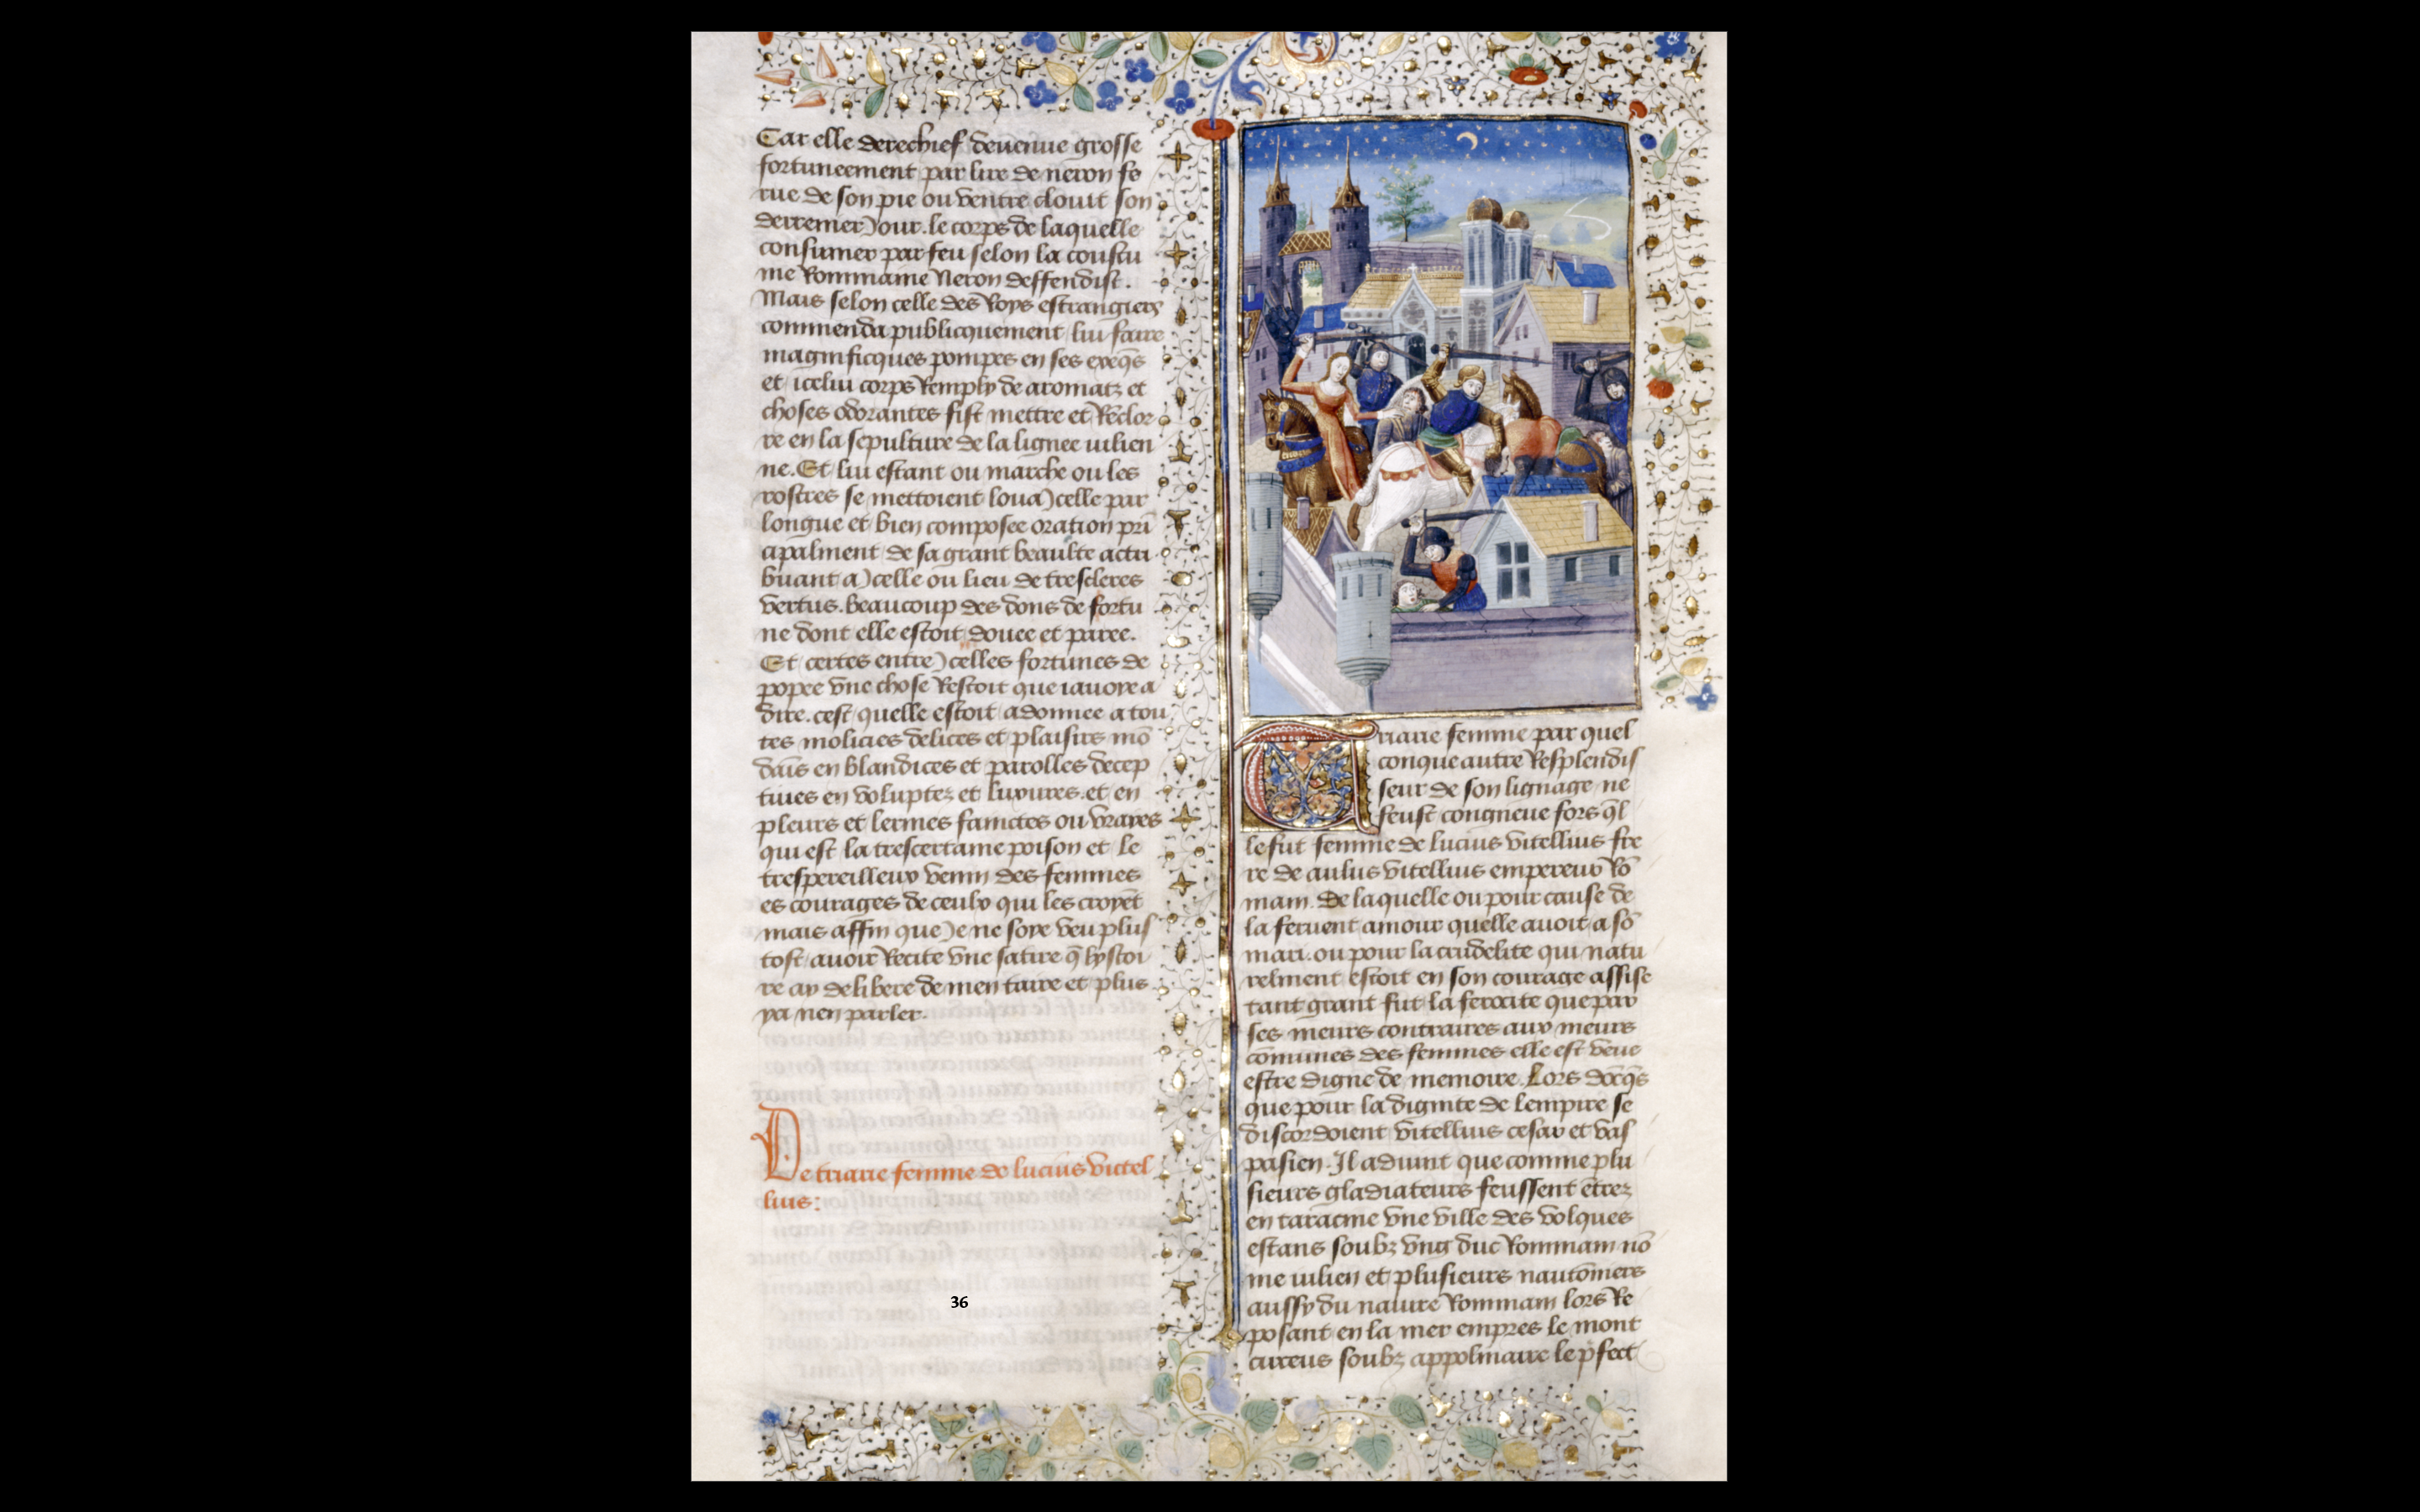 Car elle derechief devenue grosse
fortuneement par lire de neron fe
rue de son pie ou ventre clouit son
derrenier jour. le corps de laquelle
consumer par feu selon la coustu
me Rommaine Neron deffendist.
Mais selon celle des Roys estrangiers
commenda publicquement lui faire
magnificques pompes en ses exeq̃s
et icelui corps Remply de aromatz et
choses odorantes fist mettre et Reclor
re en la sepulture de la lignee iulien
ne. Et lui estant ou marche ou les
rostres se mettoient loua jcelle par
longue et bien composee oration prĩ
cipalment de sa grant beaulte actri
buant a jcelle ou lieu de trescleres
vertus. beaucoup des dons de fortu
ne dont elle estoit douee et paree.
Et certes entre jcelles fortunes de
popee vne chose Restoit que iauoye a
dire. cest quelle estoit adonnee a tou
tes molicies delices et plaisirs mõ
dais en blandices et parolles decep
tiues en voluptez et luxures. et en
pleurs et lermes faintes ou vrayes
qui est la trescertaine poison et le
tresperilleux venin des femmes
es courages de ceulx qui les croyẽt
mais affin que je ne soye veu plus
tost auoir Recite vne satire q̃ hystoi
re ay delibere de men taire et plus
ya nen parler.
De triarie femme de lucius vitel
lius:
36
Triarie femme par quel
conque autre Resplendis
seur de son lignage ne
feust congneue fors q̃l
le fut femme de lucius vitellius fre
re de aulus vitellius empereur Ro
main. De laquelle ou pour cause de
la feruent amour quelle auoit a sõ
mari. ou pour la crudelite qui natu
relment estoit en son courage assise
tant grant fut la ferocite que par
ses meurs contraires aux meurs
cõmunes des femmes elle est veue
estre digne de memoire. Lors dõcq̃s
que pour la dignite de lempire se
discordoient vitellius cesar et vas
pasien. Il aduint que comme plu
sieurs gladiateurs feussent ẽtrez
en taracine vne ville des volques
estans soubz vng duc Rommain nõ
me iulien et plusieurs nautõniers
aussy du nauire Rommain lors Re
posant en la mer empres le mont
circeus soubz appolinaire le p̃fect